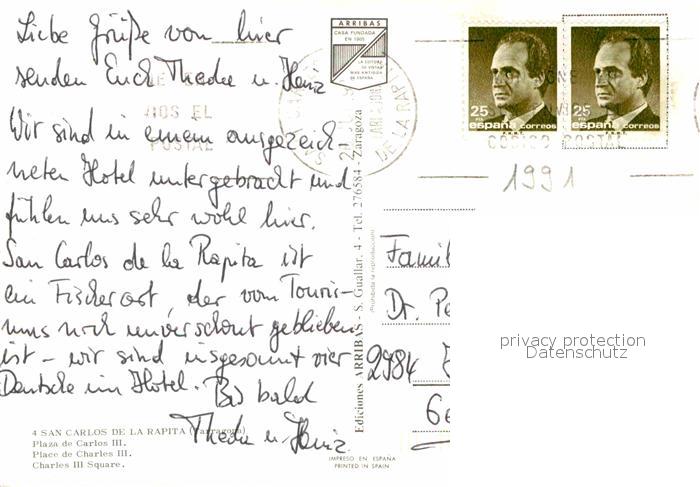 Liebe Grüße von hier
senden Euch Thedu u. Heinz
Wir sind in einem ausgezeich-
neten Hotel untergebracht und
fühlen uns sehr wohl hier.
San Carlos de la Rapita ist
ein Fischerort, der vom Touris-
mus noch unverschont geblieben
ist - wir sind insgesamt vier
Deutsche im Hotel. Bis bald
Thedu u. Heinz
4 SAN CARLOS DE LA RAPITA (Tarragona)
Plaza de Carlos III.
Place de Charles III.
Charles III Square.
ARRIBAS
CASA FUNDADA
EN 1905
LA EDITORA
DE VISTAS
MAS ANTIGUA
DE ESPAÑA
Ediciones ARRIBAS - S. Guallar, 4 - Tel. 276584 - Zaragoza
(Prohibida la reproducción)
IMPRESO EN ESPAÑA
PRINTED IN SPAIN
25
españa correos
25
españa correos
DE LA RAPI
CODIGO POSTAL
1991
Famil
Dr. Pe
2984
privacy protection
Datenschutz